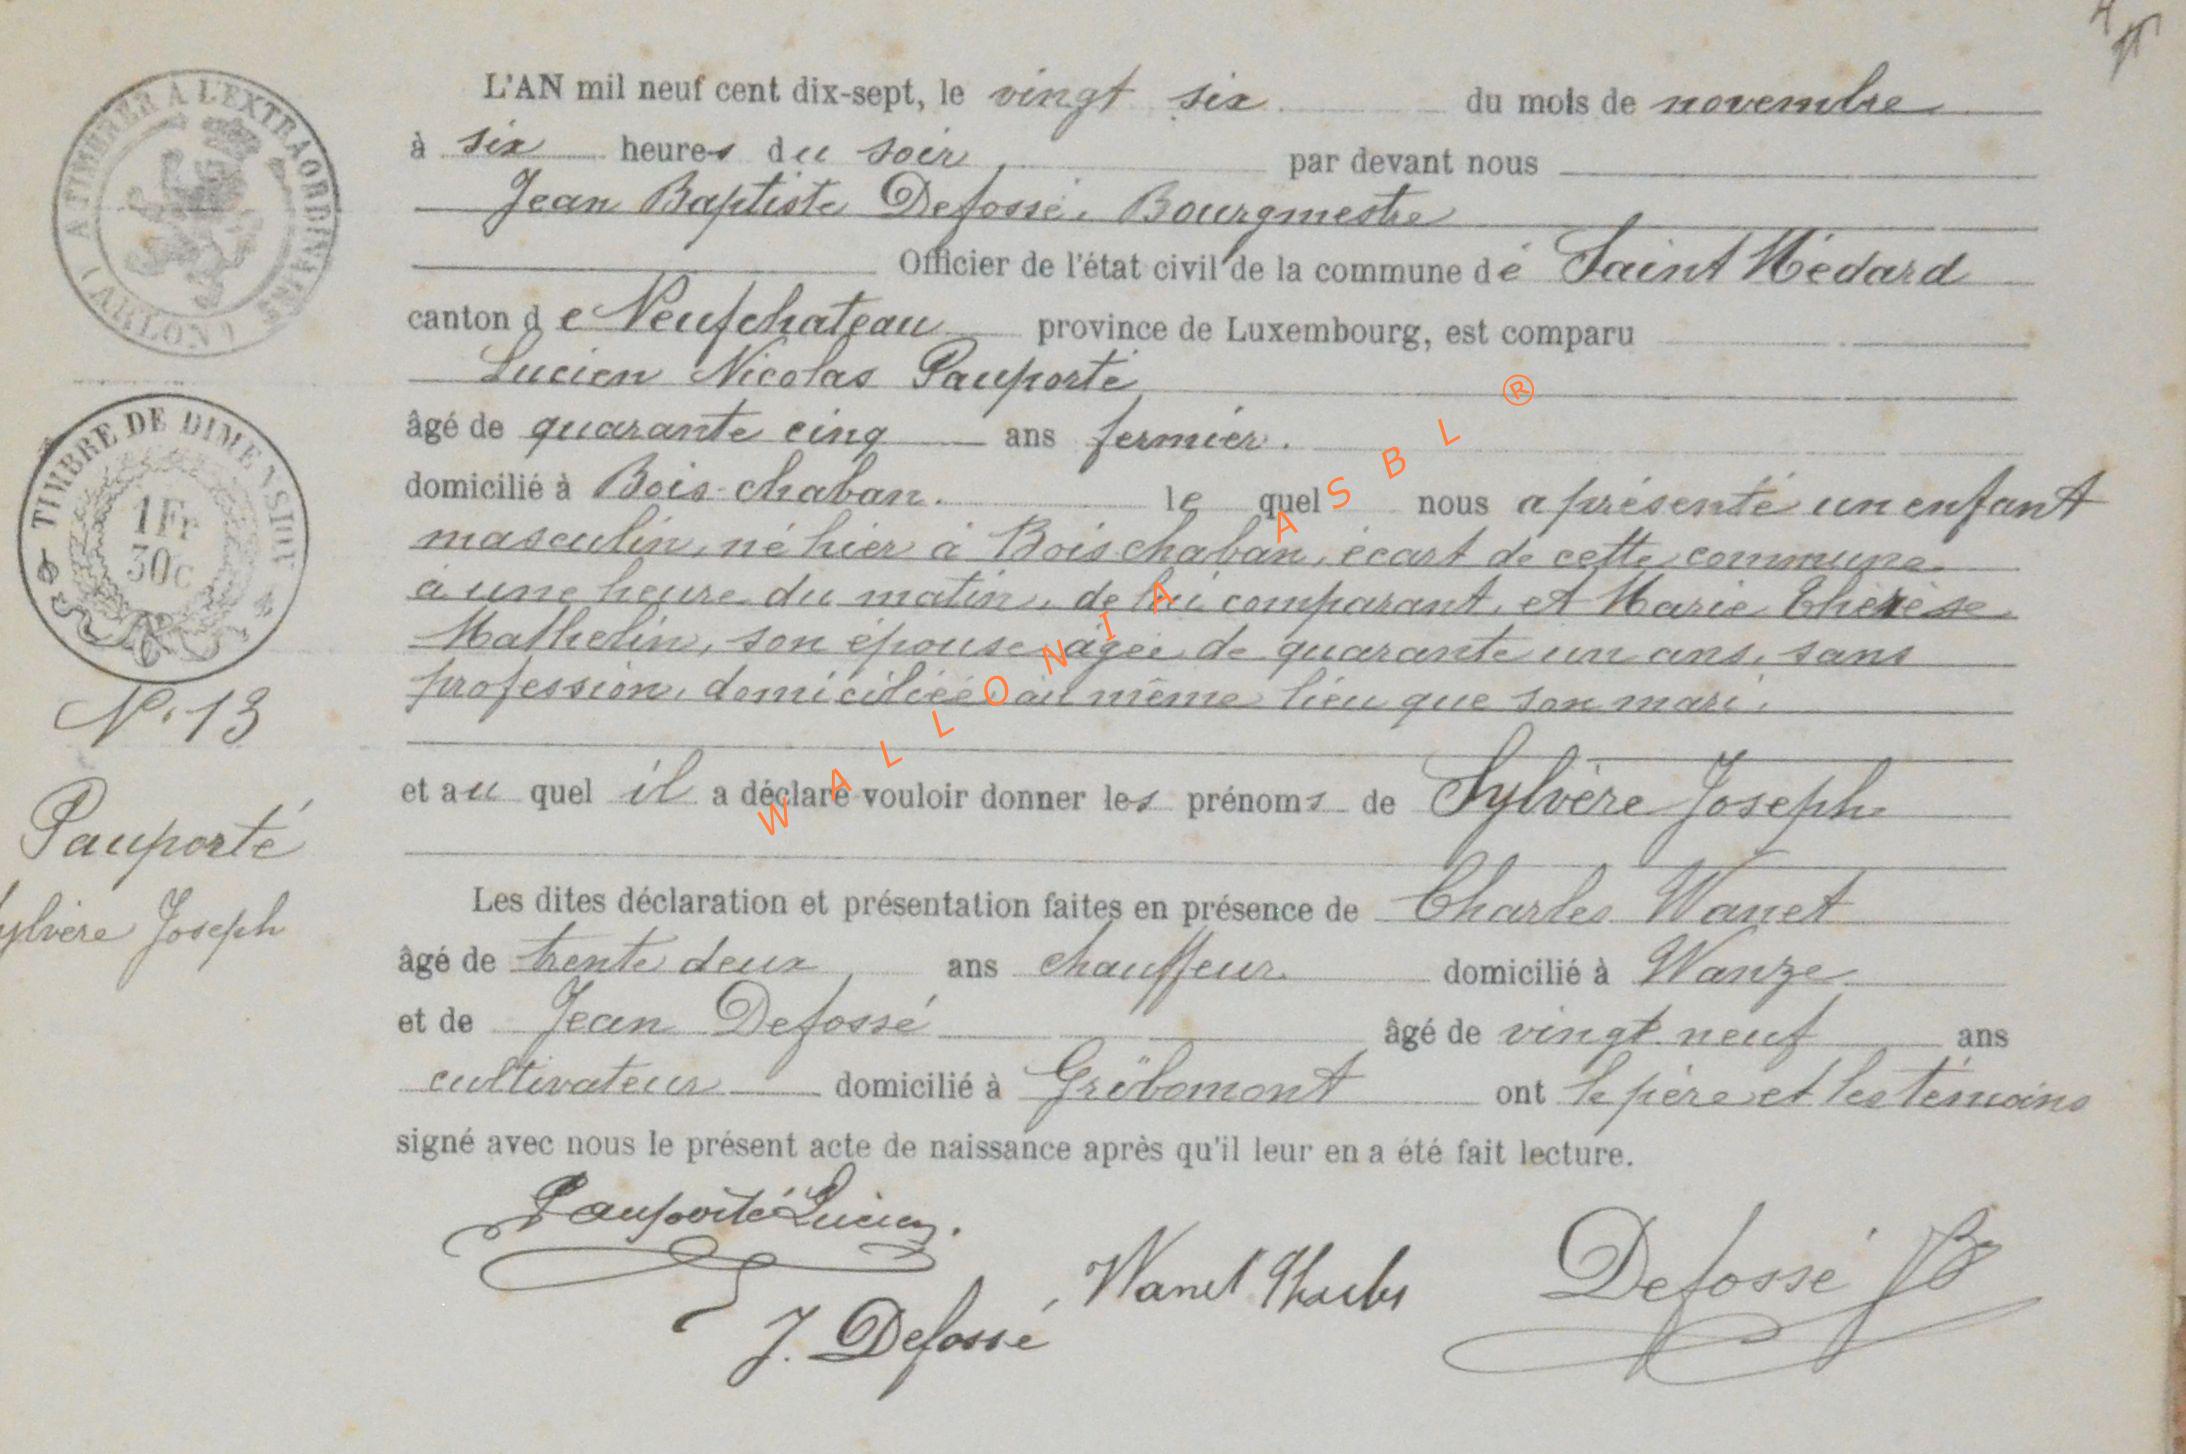 L'AN mil neuf cent dix-sept, le vingt six du mois de novembre
à six heures du soir par devant nous
Jean Baptiste Defossé, Bourgmestre
Officier de l'état civil de la commune de Saint Médard
canton de Neufchateau province de Luxembourg, est comparu
Lucien Nicolas Pauporté
âgé de quarante cinq ans fermier.
domicilié à Bois-chaban. le quel nous a présenté un enfant
masculin, né hier à Bois-chaban, écart de cette commune
à une heure du matin, de lui comparant, et Marie Thérèse
Mathelin, son épouse âgée de quarante un ans, sans
profession, domiciliée au même lieu que son mari,
et au quel il a déclaré vouloir donner les prénoms de Sylvère Joseph
Les dites déclaration et présentation faites en présence de Charles Wanet
âgé de trente deux ans chauffeur domicilié à Wanze
et de Jean Defossé âgé de vingt neuf ans
cultivateur domicilié à Gribomont ont le père et les témoins
signé avec nous le présent acte de naissance après qu'il leur en a été fait lecture.
Pauporté Lucien.
J. Defossé
Wanet Charles
Defossé JB
A TIMBRER A L'EXTRAORDINAIRE
(ARLON)
TIMBRE DE DIMENSION
1 Fr
30c
N° 13
Pauporté
Sylvère Joseph
WALLONIA ASBL ®